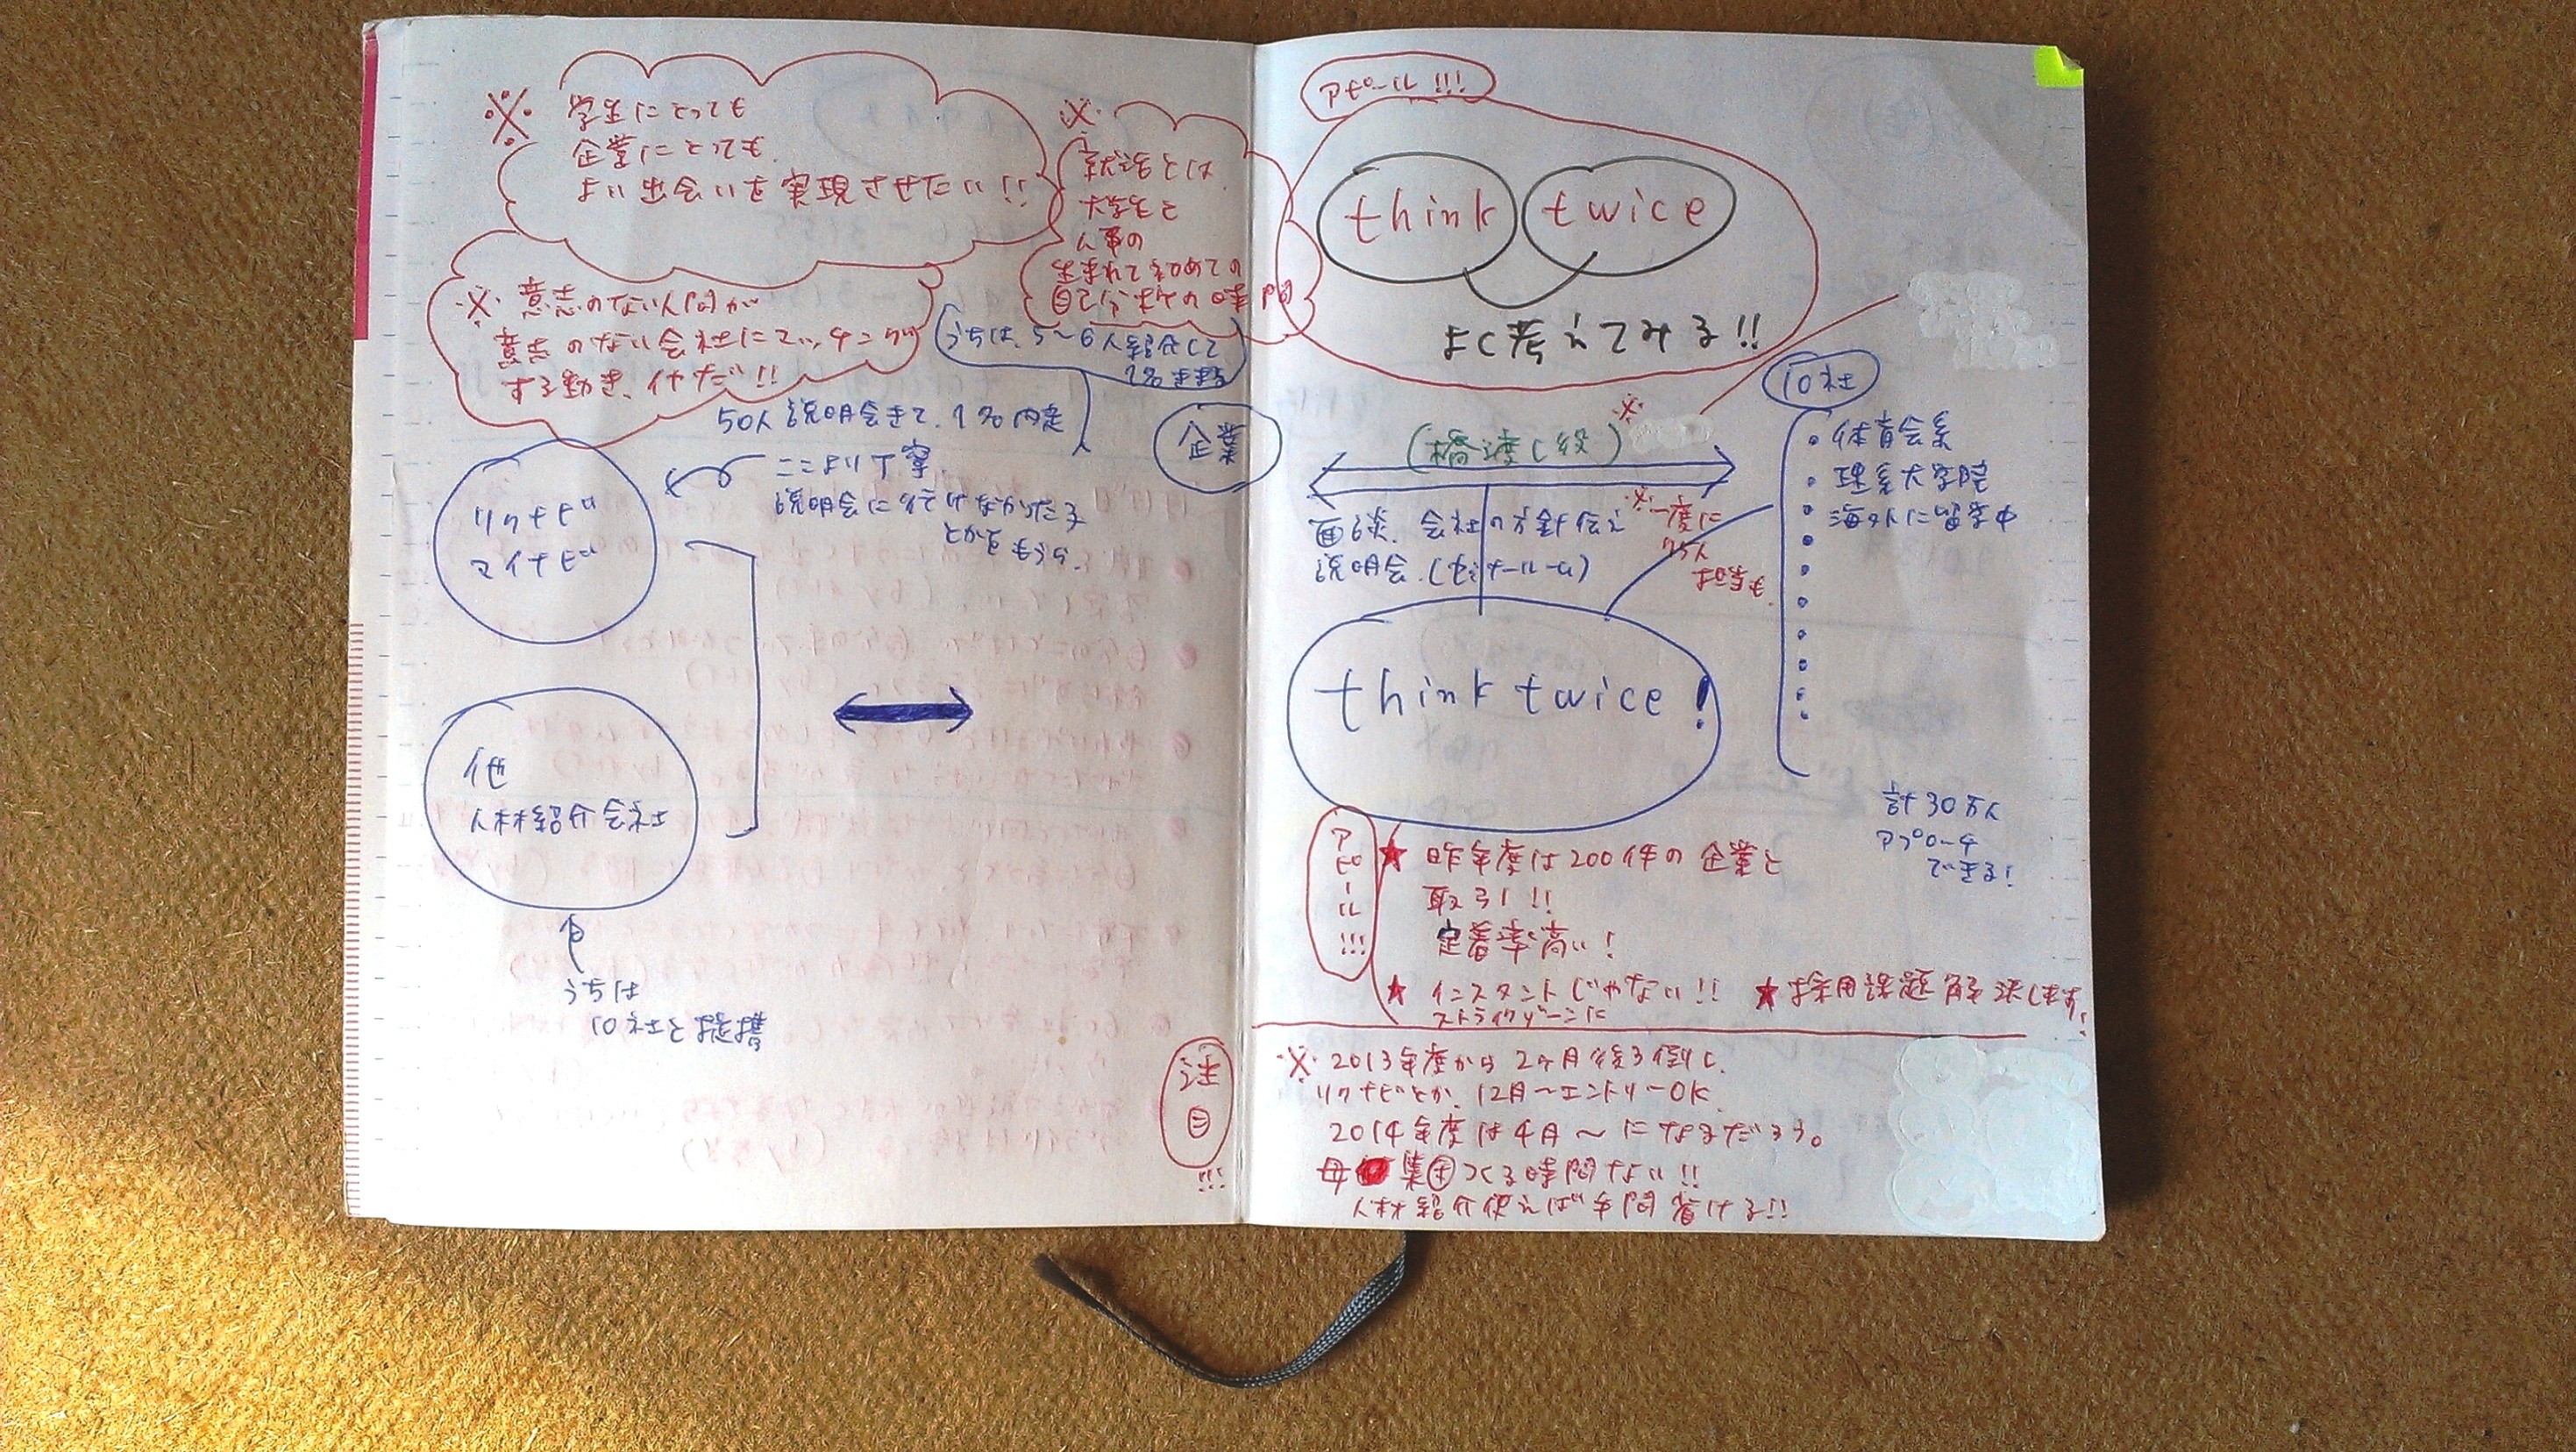 ※ 学生にとっても
企業にとっても
よい出会いを実現させたい!!
※
就活とは、
大学生と
人事の
生まれて初めての
自己分析の時間
※ 意志のない人間が
意志のない会社にマッチング
する動き、イヤだ!!
うちは、5〜6人紹介して
1名
50人 説明会きて、1名内定
ここより丁寧、
説明会に行けなかった子
とかをもうら、
企業
リクナビ
マイナビ
他
人材紹介会社
うちは
10社と提携
注目
!!!
アピール!!!
think twice
よく考えてみる!!
10社
・体育会系
・理系大学院
・海外に留学中
(橋渡し役)
※
面談、会社の方針伝え
説明会、(セミナールーム)
※一度に
75人
担当も、
think twice!
計30万人
アプローチ
できる!
アピール!!!
★ 昨年度は200件の企業と
取引!!
定着率高い!
★ インスタントじゃない!!
ストライクゾーンに
★採用課題解決します!
※ 2013年度から2ヶ月後ろ倒し、
リクナビとか、12月〜エントリーOK、
2014年度は4月〜になるだろう。
母集団つくる時間ない!!
人材紹介使えば手間省ける!!